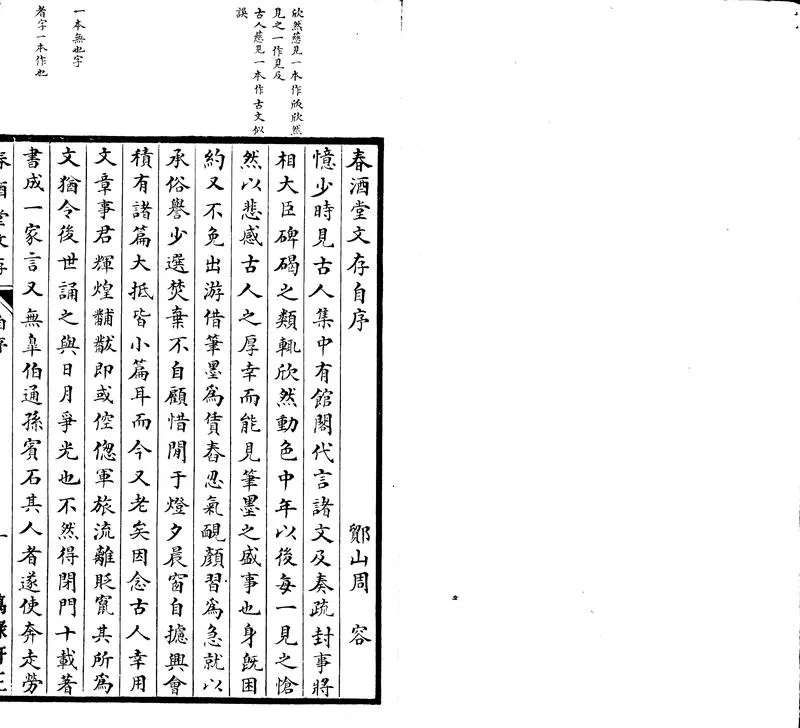 欣然慈見一本作欣欣然
見之一作見及
古人慈見一本作古文似
誤
一本無也字
者字一本作也
春酒堂文存自序
鄮山周　容
憶少時見古人集中有館閣代言諸文及奏疏封事將
相大臣碑碣之類輒欣然動色中年以後每一見之愴
然以悲感古人之厚幸而能見筆墨之盛事也身既困
約又不免出游借筆墨爲賃舂忍氣靦顏習爲急就以
承俗譽少選焚棄不自顧惜閒于燈夕晨窗自攄興會
積有諸篇大抵皆小篇耳而今又老矣因念古人幸用
文章事君輝煌黼黻即或倥傯軍旅流離貶竄其所爲
文猶令後世誦之與日月爭光也不然得閉門十載著
書成一家言又無臯伯通孫賓石其人者遂使奔走勞
春酒堂文存
自序
一